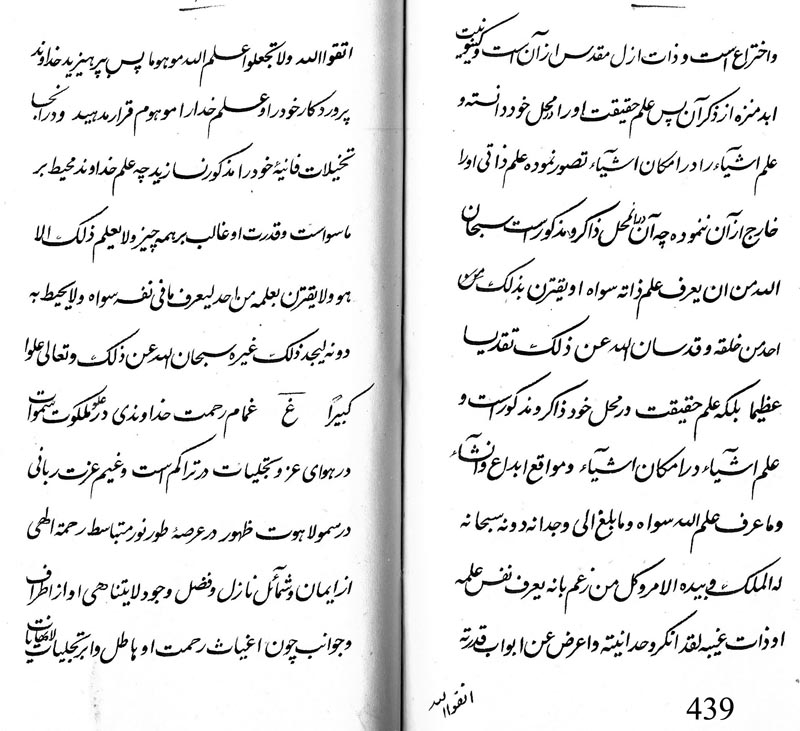 واختراع است و ذات ازل مقدس از آن است و کینونیت
ابد منزه از ذکر آن پس علم حقیقت او را در محل خود دانسته و
علم اشیآء را در امکان اشیآء تصور نموده علم ذاتی او را
خارج از آن ننموده چه آن در آنمحل ذاکر و مذکور است سبحان
الله من ان یعرف علم ذاته سواه او یقترن بذلک من
احد من خلقه و قدسان الله عن ذلک تقدیسا
عظیما بلکه علم حقیقت در محل خود ذاکر و مذکور است و
علم اشیآء در امکان اشیآء و مواقع ابداع و انشآء
و ما عرف علم الله سواه و ما بلغ الی وجدانه دونه سبحانه
له الملک و بیده الامر و کل من زعم بانه یعرف نفس علمه
او ذات غیبه لقد انکر وحدانیته و اعرض عن ابواب قدرته
اتقوا الله
439
اتقوا الله ولا تجعلوا علم الله موهوما پس بپرهیزید خداوند
پروردکار خود را و علم خدا را موهوم قرار مدهید و در انجا
تخیلات فانیهٔ خود را مذکور نسازید چه علم خداوند محیط بر
ماسواست و قدرت او غالب بر همه چیز ولا یعلم ذلک الا
هو ولا یقترن بعلمه من احد لیعرف ما فی نفسه سواه ولا یحیط به
دونه لیجد ذلک غیره سبحان الله عن ذلک و تعالی علوا
کبیرًا غ غمام رحمت خداوندی در علو ملکوت سموات
در هوای عز و تجلیات در تراکم است و غیم عزت ربانی
در سمو لاهوت ظهور در عرصهٔ طور نور متباسط رحمة الهی
از ایمان و شمآئل نازل و فضل وجود لایتناهی او از اطراف
و جوانب چون اغیاث رحمت او هاطل و ابر تجلیات لانهایات